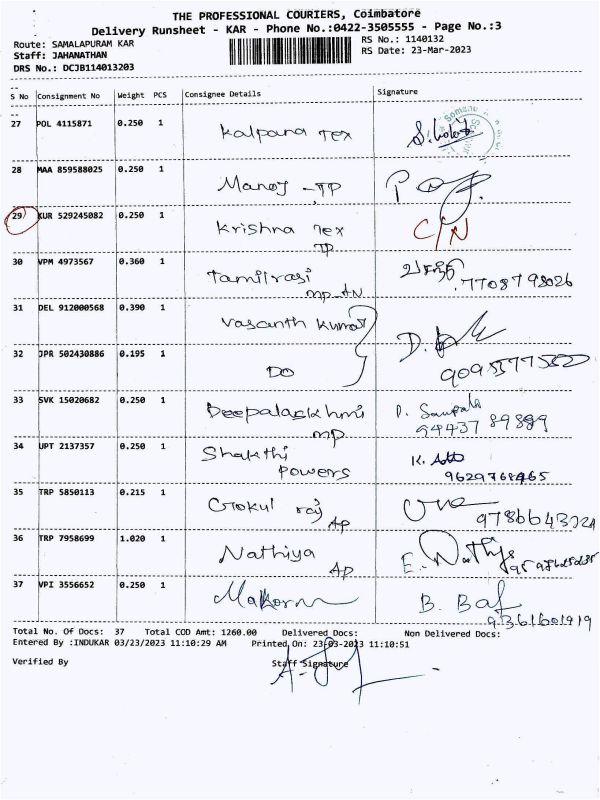 THE PROFESSIONAL COURIERS, Coimbatore
Delivery Runsheet - KAR - Phone No.:0422-3505555 - Page No.:3
Route: SAMALAPURAM KAR
RS No.: 1140132
Staff: JAHANATHAN
RS Date: 23-Mar-2023
DRS No.: DCJB114013203
S No Consignment No Weight PCS Consignee Details Signature
27 POL 4115871 0.250 1 Kalpana Tex
28 MAA 859588025 0.250 1 Manoj - TP
29 KUR 529245082 0.250 1 Krishna Tex C/N
TP
30 VPM 4973567 0.360 1 Tamilrasi
mp-tN .7708798026
31 DEL 912000568 0.390 1 Vasanth Kumar
32 JPR 502430886 0.195 1 DO
33 SVK 15020682 0.250 1 Deepalackhmi
mp 94437 89899
34 UPT 2137357 0.250 1 Shakthi
Powers 9629768465
35 TRP 5850113 0.215 1 Gokul raj
AP
36 TRP 7958699 1.020 1 Nathiya
AP
37 VPI 3556652 0.250 1
Total No. Of Docs: 37 Total COD Amt: 1260.00 Delivered Docs: Non Delivered Docs:
Entered By :INDUKAR 03/23/2023 11:10:29 AM Printed On: 23-03-2023 11:10:51
Verified By Staff Signature